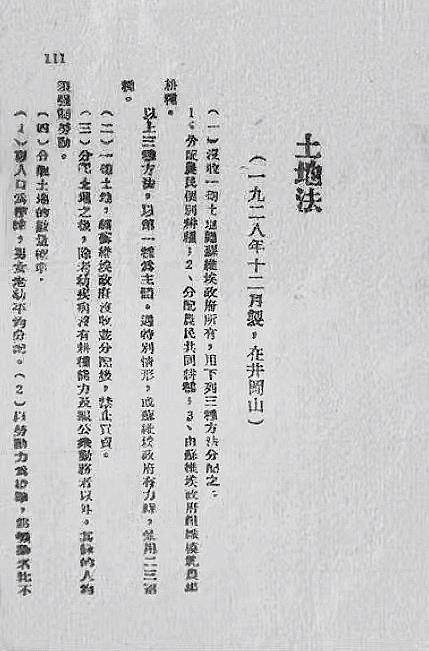 土地法
（一九二八年十二月製，在井岡山）
（一）沒收一切土地歸蘇維埃政府所有，用下列三種方法分配之：
1、分配農民個別耕種；2、分配農民共同耕種；3、由蘇維埃政府組織模範農場
耕種。
以上三種方法，以第一種為主體。遇特別情形，或蘇維埃政府有力時，兼用二三兩
種。
（二）一切土地，經蘇維埃政府沒收並分配後，禁止買賣。
（三）分配土地之後，除老幼疾病沒有耕種能力及服公眾勤務者以外，其餘的人均
須強制勞動。
（四）分配土地的數量標準：
（1）以人口為標準，男女老幼平均分配。（2）以勞動力為標準，能勞動者比不
111